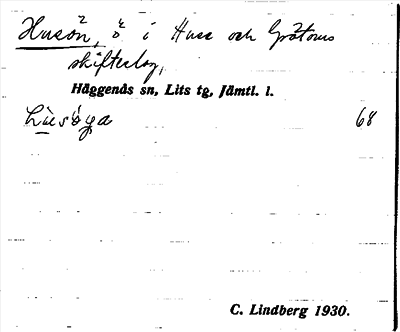 Husön, ö i Huse och Gråtorns
skifteslag,
Häggenås sn, Lits tg, Jämtl. l.
hùsø̀ya 68
C. Lindberg 1930.